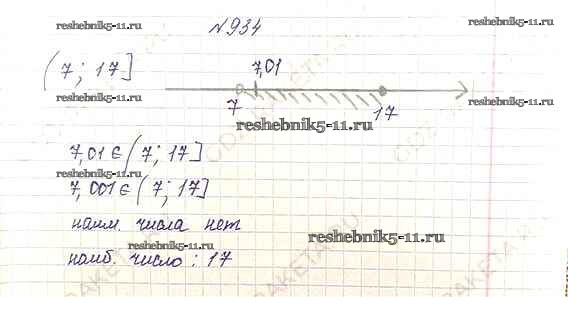 №934
reshebnik5-11.ru reshebnik5-11.ru
(7; 17] 7,01
reshebnik5-11.ru reshebnik5-11.ru
7 17
reshebnik5-11.ru
7,01 ∈ (7; 17]
7,001 ∈ (7; 17]
наим. числа нет
reshebnik5-11.ru reshebnik5-11.ru
наиб. число: 17